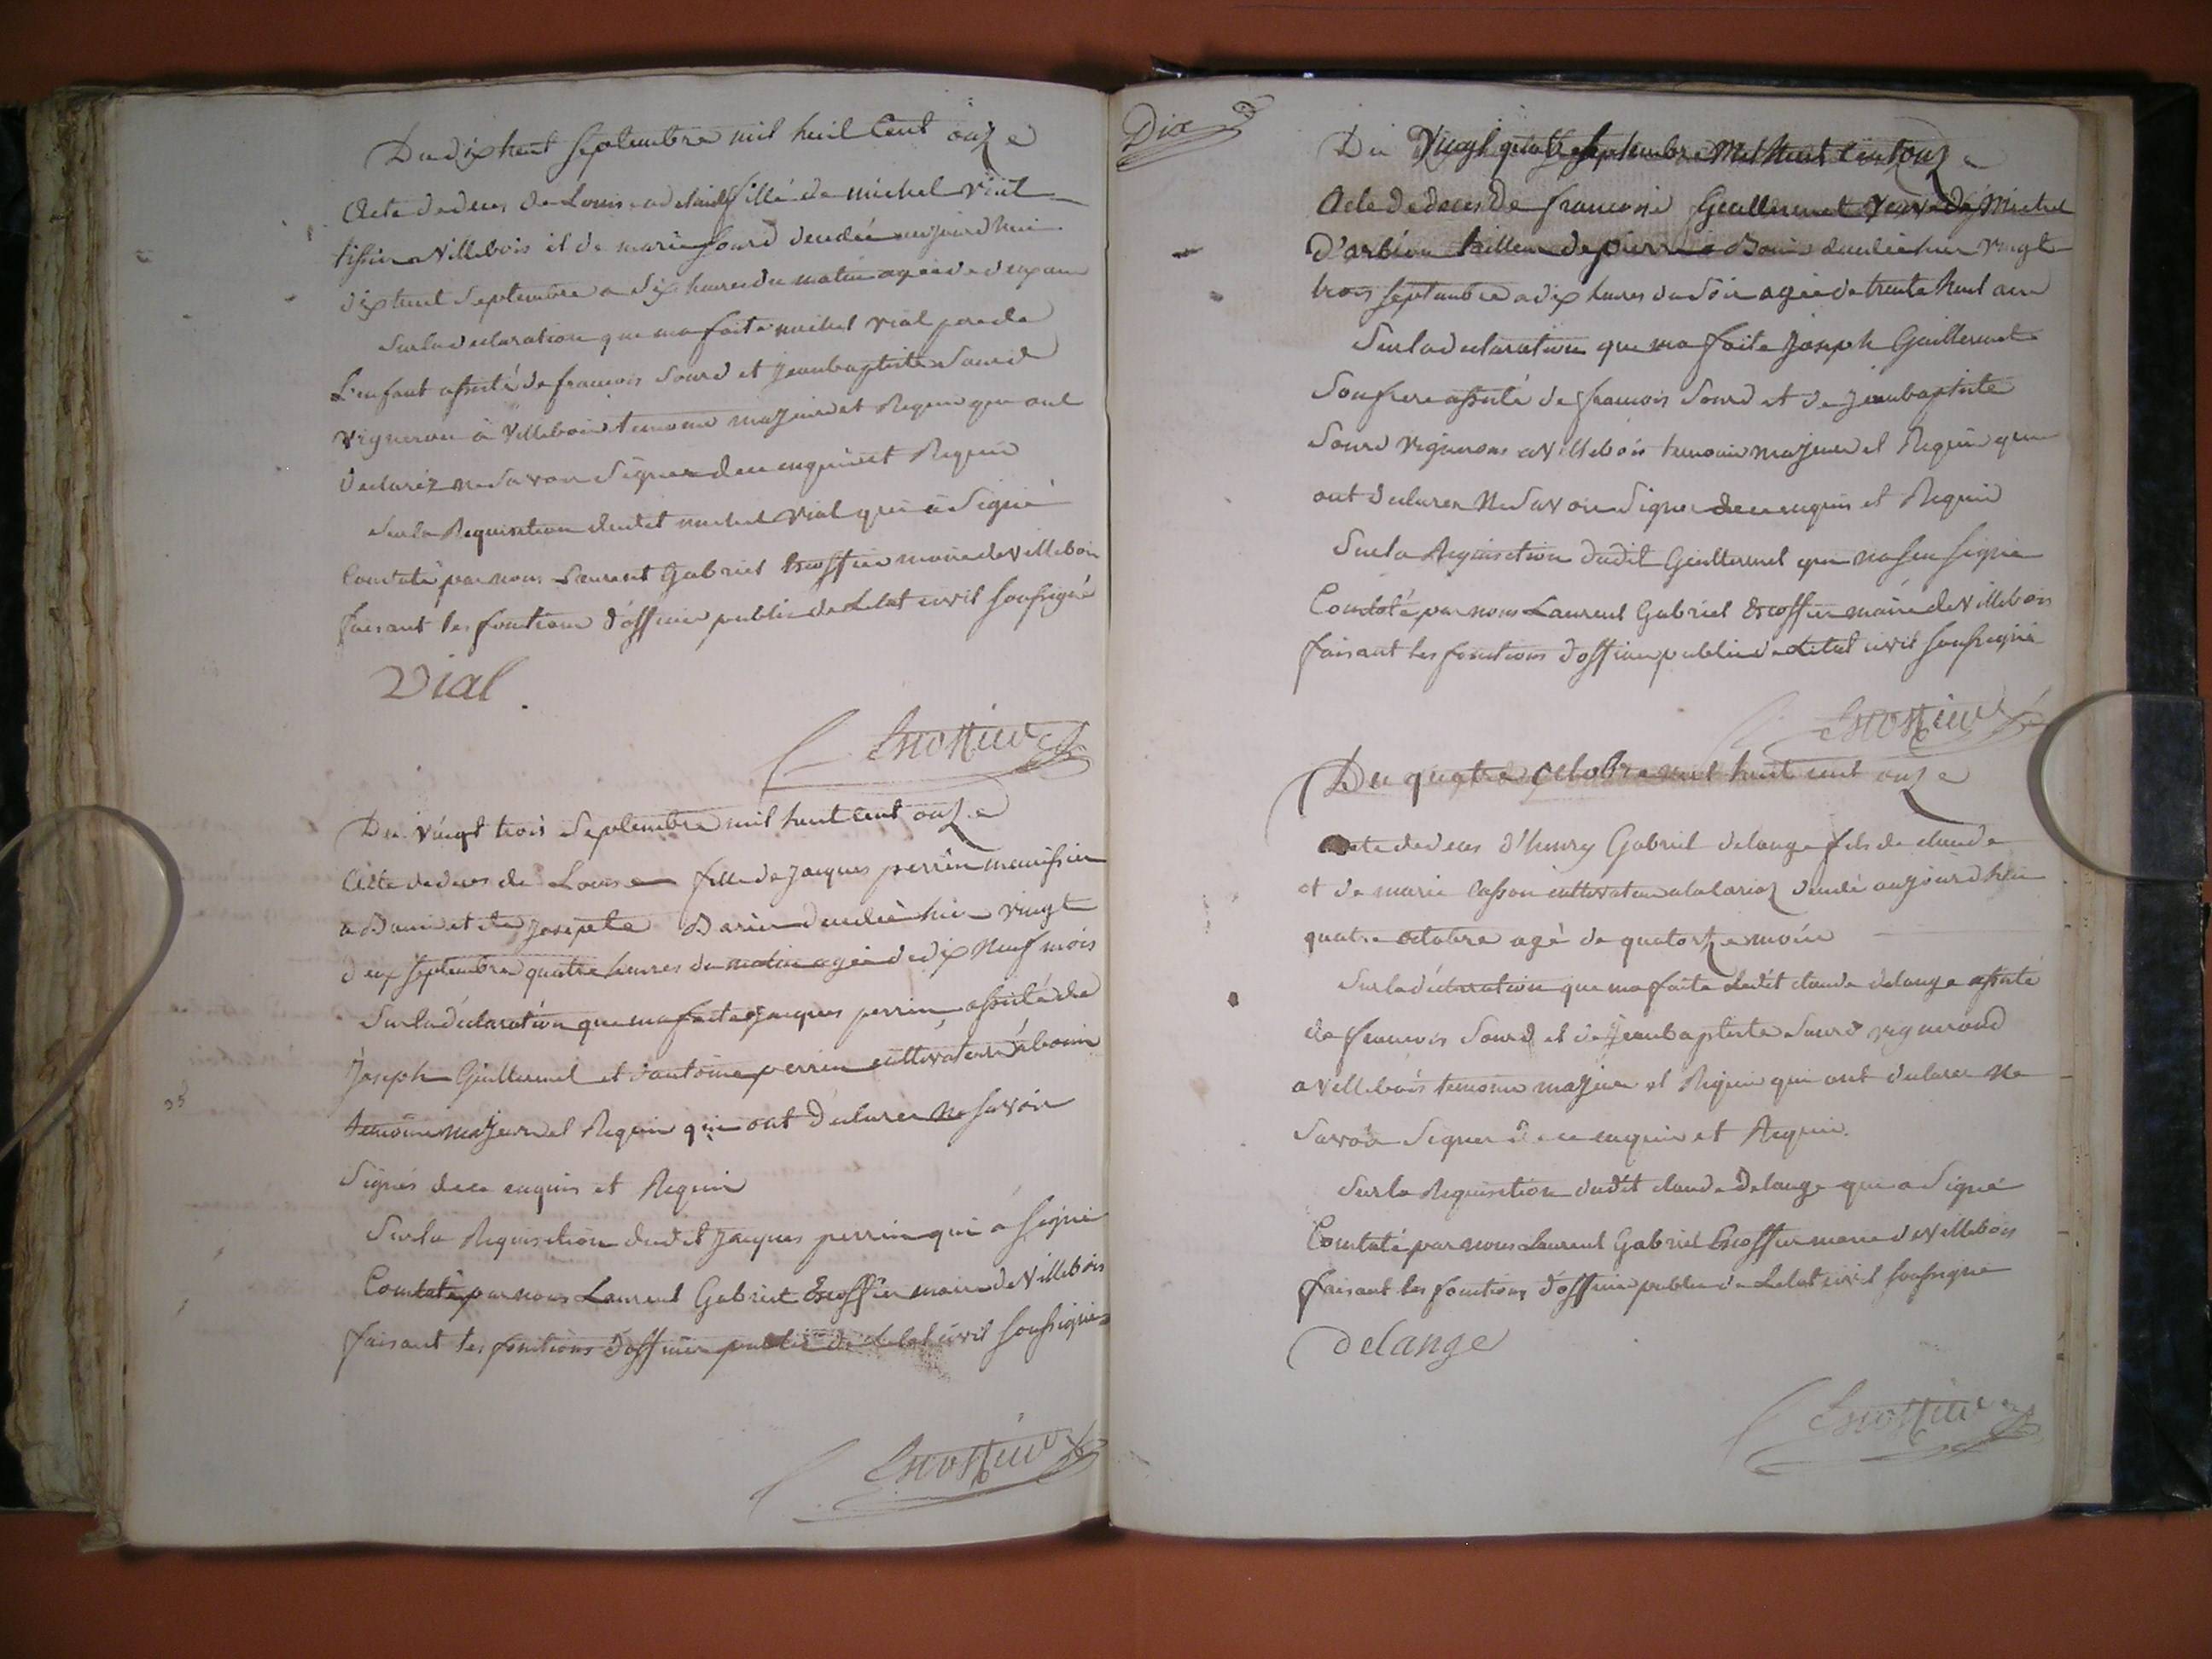 Du dixhuit Septembre mil huit Cent onze
Acte de deces de Louise adelaide fille de michel vial
tissier a Villebois et de marie Sourd decedée aujourdhui
dixhuit Septembre a dix heures du matin agée de deux ans
Sur la declaration que ma faite michel vial pere de
L'enfant assisté de francois Sourd et jeanbaptiste Sourd
vigneron à Villebois temoins majeurs et Requis qui ont
declaréz ne Savoir Signer de ce enquis et Requis
Sur la Requisition dudit michel vial qui a Signé
Constaté par nous Laurent Gabriel Escoffier maire de Villebois
faisant les fonctions d'officier public de Letat civil soussigné
Vial
Escoffier
Du vingt trois Septembre mil huit cent onze
Acte de deces de Louise fille de jacques perrin
a Bouis et de josepte decedée hier vingt
deux septembre quatre heures du matin agée de dix neuf mois
Sur la déclaration que ma faite jacques perrin assisté de
Joseph Guillermet et d'antoine perrin cultivateurs à bouis
temoins majeurs et Requis qui ont déclarer ne savoir
Signés de ce enquis et Requis
Sur la Requisition dudit jacques perrin qui a signé
Constaté par nous Laurent Gabriel Escoffier maire de Villebois
faisant les fonctions d'officier public de Letat civil soussigné
Escoffier
Dix
Du Vingt quatre septembre Mil huit Cent onze
Acte de deces de francoise Guillermet veuve de Michel
D'arbien tailleur de pierre a Bouis decedée hier vingt
trois septembre a dix heures du Soir agée de trente huit ans
Sur la declaration que ma faite Joseph Guillermet
Son frere assisté de francois Sourd et de jeanbaptiste
Sourd vignerons a Villebois temoins majeurs et Requis qui
ont declarer ne Savoir Signer de ce enquis et Requis
Sur la Requisition dudit Guillermet qui na seu signé
Constaté par nous Laurent Gabriel Escoffier maire de Villebois
faisant les fonctions d'officier public de Letat civil soussigné
Escoffier
Du quatre octobre mil huit cent onze
Acte de deces d'henry Gabriel delange fils de claude
et de marie Casson cultivateur a decedé aujourdhui
quatre octobre agé de quatorze mois
Sur la déclaration que ma faite Ledit claude delange assisté
de francois Sourd et de jeanbaptiste Sourd vignerond
a Villebois temoins majeurs et Requis qui ont declarer ne
Savoir Signer de ce enquis et Requis.
Sur la Requisition dudit claude Delange qui a Signé
Constaté par nous Laurent Gabriel Escoffier maire de Villebois
faisant les fonctions d'officier public de Letat civil soussigné
delange
Escoffier